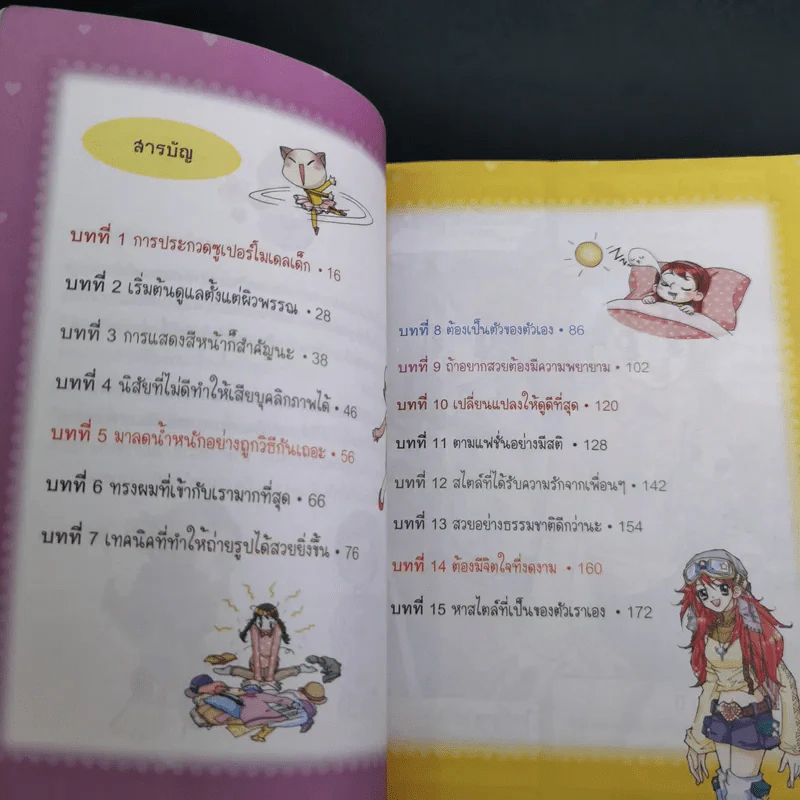 สารบัญ
บทที่ 1 การประกวดซูเปอร์โมเดลเด็ก • 16
บทที่ 2 เริ่มต้นดูแลตั้งแต่ผิวพรรณ • 28
บทที่ 3 การแสดงสีหน้าก็สำคัญนะ • 38
บทที่ 4 นิสัยที่ไม่ดีทำให้เสียบุคลิกภาพได้ • 46
บทที่ 5 มาลดน้ำหนักอย่างถูกวิธีกันเถอะ • 56
บทที่ 6 ทรงผมที่เข้ากับเรามากที่สุด • 66
บทที่ 7 เทคนิคที่ทำให้ถ่ายรูปได้สวยยิ่งขึ้น • 76
บทที่ 8 ต้องเป็นตัวของตัวเอง • 86
บทที่ 9 ถ้าอยากสวยต้องมีความพยายาม • 102
บทที่ 10 เปลี่ยนแปลงให้ดูดีที่สุด • 120
บทที่ 11 ตามแฟชั่นอย่างมีสติ • 128
บทที่ 12 สไตล์ที่ได้รับความรักจากเพื่อนๆ • 142
บทที่ 13 สวยอย่างธรรมชาติดีกว่านะ • 154
บทที่ 14 ต้องมีจิตใจที่งดงาม • 160
บทที่ 15 หาสไตล์ที่เป็นของตัวเราเอง • 172